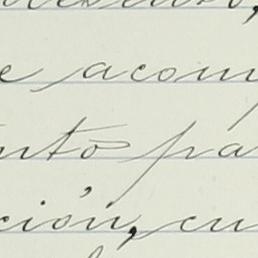 e acom
nto pa
ción, cu